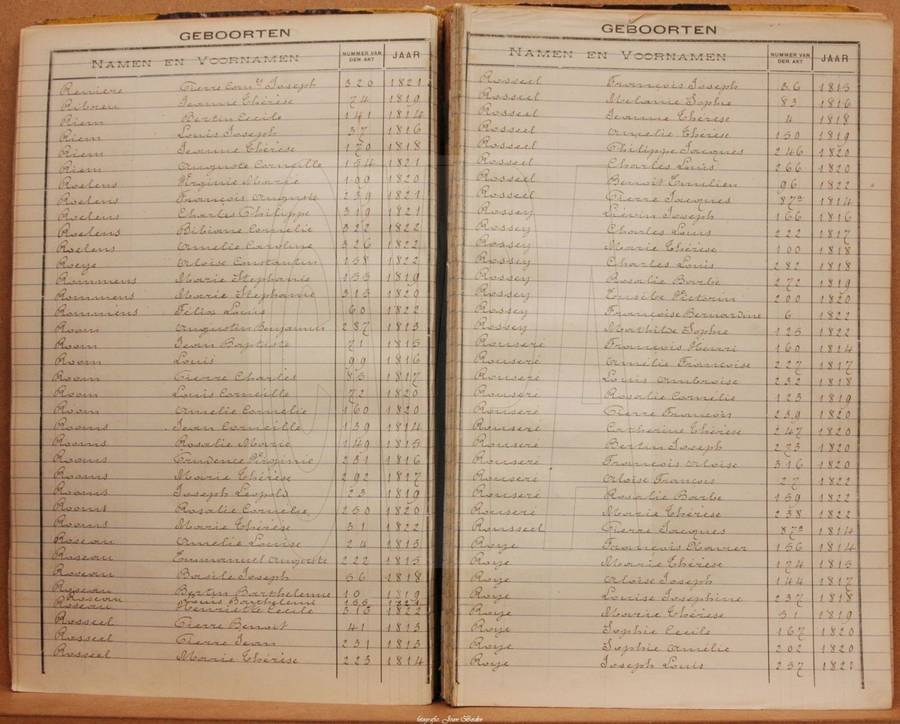 GEBOORTEN
NAMEN EN VOORNAMEN NUMMER VAN DEN AKT JAAR
Reniere Pierre Joseph 320 1821
Jeanne Thérèse 74 1819
Riem Bertin Cecile 141 1814
Riem Louis Joseph 37 1816
Riem Jeanne Thérèse 170 1818
Riem Auguste Corneille 154 1821
Roelens Virginie Marie 199 1820
Roelens François Auguste 239 1821
Roelens Charles Philippe 319 1821
Roelens Bibiane Cornelie 322 1822
Roelens Amelie Caroline 326 1822
Roeye Aloise Constantin 138 1822
Rommens Marie Stephanie 133 1819
Rommens Marie Stephanie 313 1820
Rommens Félix Louis 60 1822
Room Augustin Benjamin 287 1813
Room Jean Baptiste 71 1815
Room Louis 99 1816
Room Pierre Charles 83 1817
Room Louis Corneille 72 1820
Room Amelie Cornelie 160 1820
Rooms Jean Corneille 139 1814
Rooms Rosalie Marie 149 1815
Rooms Prudence Virginie 231 1816
Rooms Marie Thérèse 292 1817
Rooms Joseph Leopold 23 1819
Rooms Rosalie Cornelie 250 1820
Rooms Marie Thérèse 31 1822
Roseau Amelie Louise 24 1813
Roseau Emmanuel Auguste 222 1815
Roseau Basile Joseph 36 1818
Roseau Bertin Barthelemie 10 1819
Roseau Louis Barthelemi
Roseau Henriette Cecile 313 1822
Rosseel Pierre Benoit 41 1813
Rosseel Pierre Jean 231 1813
Rosseel Marie Thérèse 223 1814
GEBOORTEN
NAMEN EN VOORNAMEN NUMMER VAN DEN AKT JAAR
Rosseel François Joseph 36 1815
Rosseel Melanie Sophie 83 1816
Rosseel Jeanne Thérèse 4 1818
Rosseel Amelie Thérèse 150 1819
Rosseel Philippe Jacques 246 1820
Rosseel Charles Louis 266 1820
Rosseel Benoit Emilien 96 1822
Rosseel Pierre Jacques 1814
Rossey Lievin Joseph 166 1816
Rossey Charles Louis 222 1817
Rossey Marie Thérèse 100 1818
Rossey Charles Louis 282 1818
Rossey Rosalie Barbe 272 1819
Rossey Eusèbe Pictorin 200 1820
Rossey Françoise Bernardine 6 1822
Rossey Mathilde Sophie 125 1822
Rouseré François Henri 160 1814
Rouseré Amélie Françoise 227 1817
Rouseré Louis Ambroise 232 1818
Rouseré Rosalie Cornelie 123 1819
Rouseré Pierre François 239 1820
Rouseré Catherine Thérèse 247 1820
Rouseré Bertin Joseph 273 1820
Rouseré François Aloise 316 1820
Rouseré Aloise François 27 1822
Rouseré Rosalie Barbe 159 1822
Rouseré Marie Thérèse 238 1822
Rousseel Pierre Jacques 1814
Roye François Xavier 156 1814
Roye Marie Thérèse 174 1815
Roye Aloise Joseph 144 1817
Roye Louise Josephine 237 1818
Roye Marie Thérèse 31 1819
Roye Sophie Cecile 167 1820
Roye Sophie Amelie 202 1820
Roye Joseph Louis 237 1822